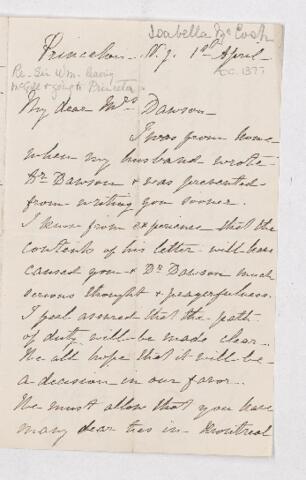 Isabella McCosh
Princeton. N.J. 1st April.
c. 1877
Re- Sir Wm. leaving
McGill & going to Princeton
My dear Mrs Dawson-
I was from home
when my husband wrote
Dr Dawson & was prevented
from writing you sooner.
I know from experience that the
contents of his letter will have
caused you & Dr Dawson much
serious thought & prayerfulness.
I feel assured that the path
of duty will be made clear.
We all hope that it will be
a decision in our favor..
We must allow that you have
many dear ties in Montreal